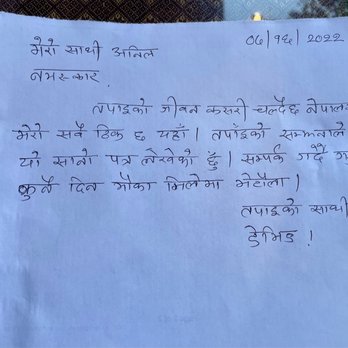 ०७/१६/२०२२
मेरो साथी अनिल
नमस्कार,
तपाइको जीवन कसरी चल्दैछ नेपालमा
मेरो सबै ठिक छ यहाँ। तपाइको सम्झनाले
यो सानो पत्र लेखेको छुँ। सम्पर्क गर्दै
कुनै दिन मौका मिलेमा भेटौला।
तपाइको साथी
डेभिड!